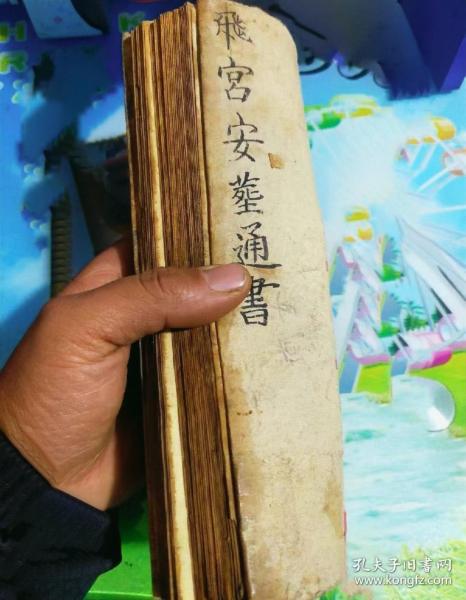 飛宮安塟通書
孔夫子旧书网
www.kongfz.com